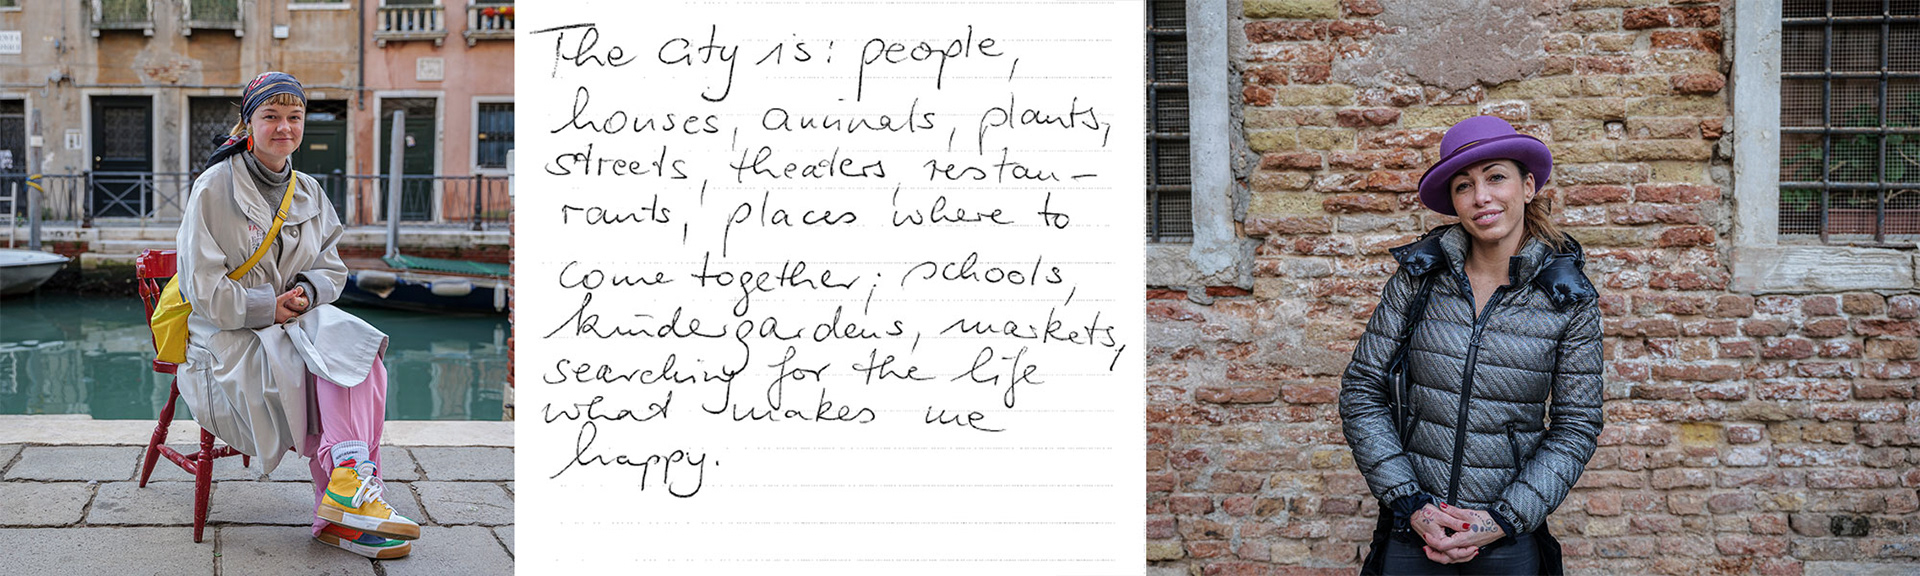 The city is: people,
houses, animals, plants,
streets, theaters, restau-
rants, places where to
come together; schools,
kindergardens, markets,
searching for the life
what makes me
happy.